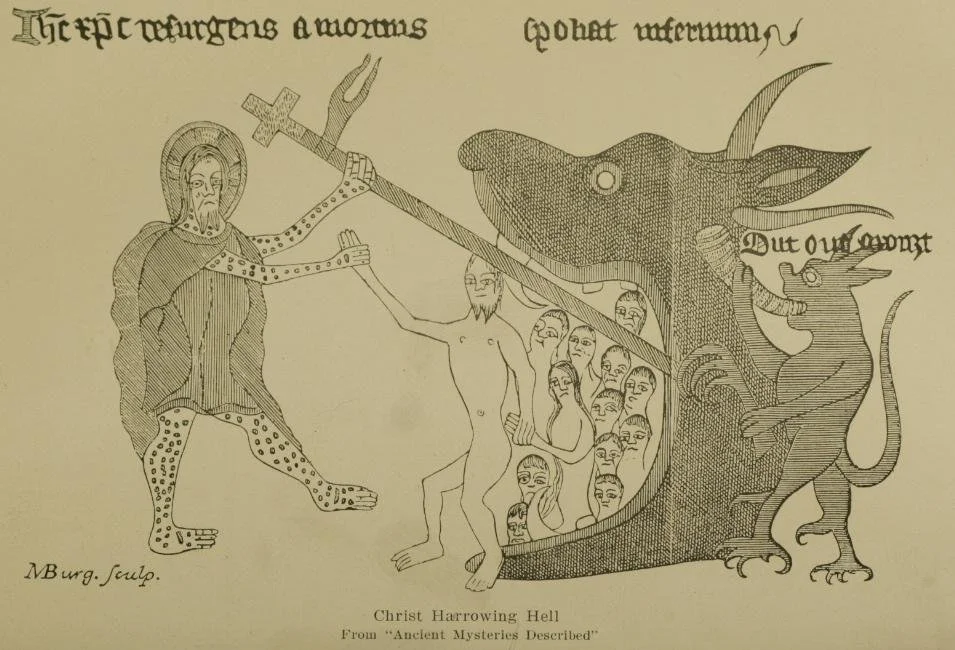 Ih̄c xp̄c resurgens a mortuis spoliat infernum
Out out arongt
MBurg. sculp.
Christ Harrowing Hell
From "Ancient Mysteries Described"